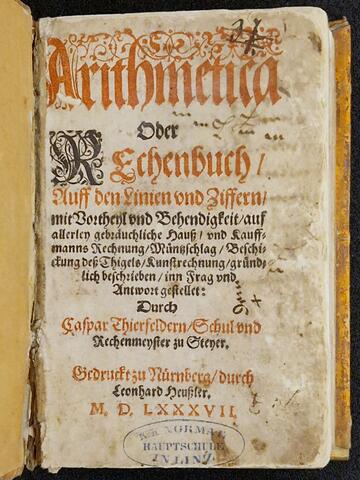 Arithmetica
Oder
REchenbuch/
Auff den Linien vnd Ziffern/
mit Vortheyl vnd Behendigkeit/auf
allerley gebräuchliche Hauß/vnd Kauff-
manns Rechnung/Müntzschlag/Beschi-
ckung deß Thigels/Kunstrechnung/gründ-
lich beschrieben/inn Frag vnd
Antwort gestellet:
Durch
Caspar Thierfeldern/Schul vnd
Rechenmeyster zu Steyer.
Gedruckt zu Nürnberg/durch
Leonhard Heußler.
M. D. LXXXVII.
NORMAL
HAUPTSCHULE
IN LINZ